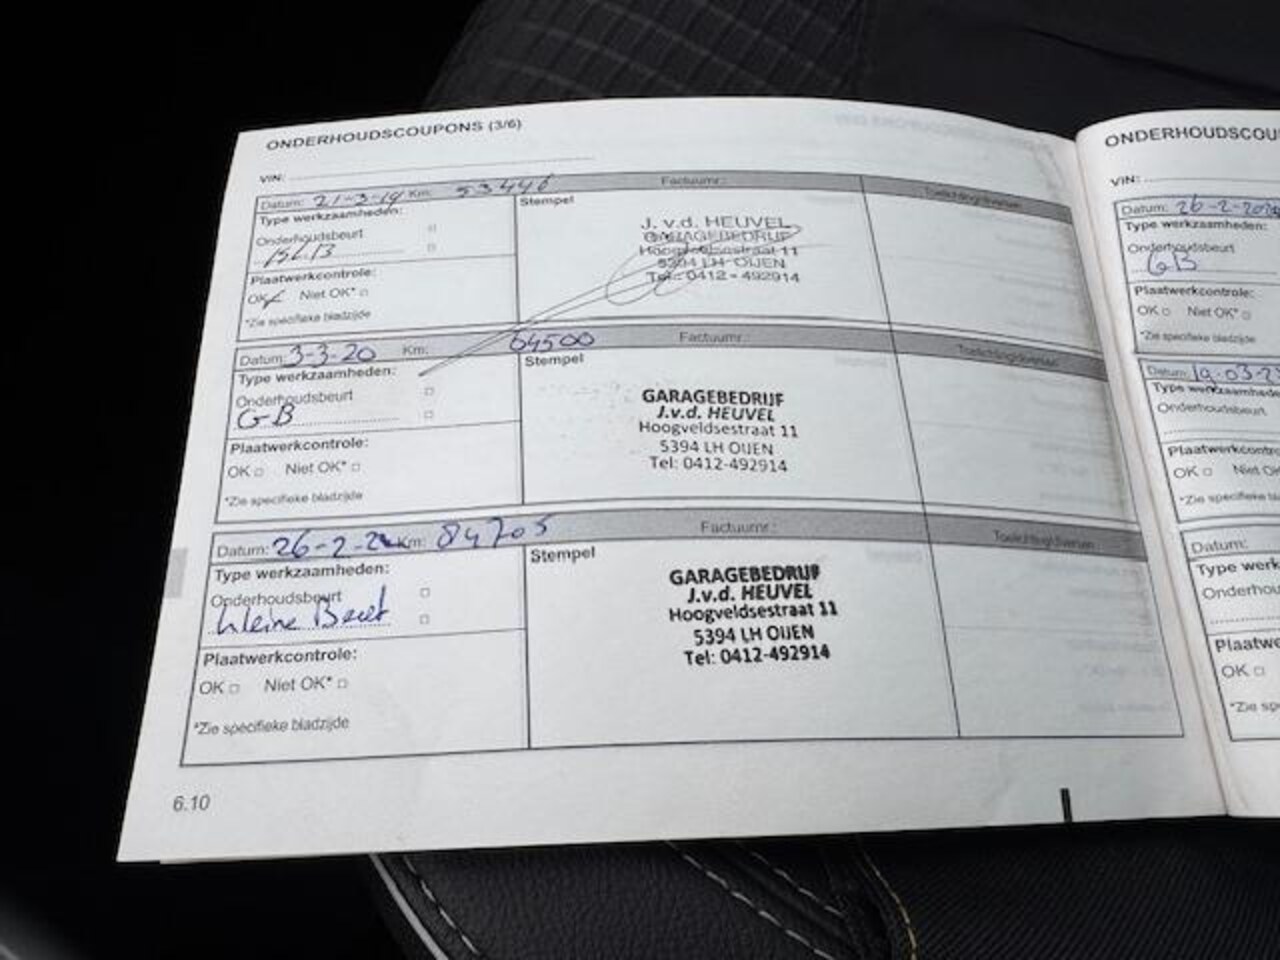 ONDERHOUDSCOUPONS (3/6)
VIN:
Datum: 21-3-19 Km: 53446 Factuurnr.:
Type werkzaamheden:
Stempel
Onderhoudsbeurt
Plaatwerkcontrole:
OK Niet OK*
*Zie specifieke bladzijde
J. v.d. HEUVEL
GARAGEBEDRIJF
Hoogveldsestraat 11
5394 LH OIJEN
Tel.: 0412 - 492914
Datum: 3-3-20 Km: 64500 Factuurnr.:
Type werkzaamheden:
Stempel
Onderhoudsbeurt
GB
Plaatwerkcontrole:
OK Niet OK*
*Zie specifieke bladzijde
GARAGEBEDRIJF
J.v.d. HEUVEL
Hoogveldsestraat 11
5394 LH OIJEN
Tel: 0412-492914
Datum: 26-2-2 Km: 84705 Factuurnr.:
Type werkzaamheden:
Stempel
Onderhoudsbeurt
kleine Beurt
Plaatwerkcontrole:
OK Niet OK*
*Zie specifieke bladzijde
GARAGEBEDRIJF
J.v.d. HEUVEL
Hoogveldsestraat 11
5394 LH OIJEN
Tel: 0412-492914
6.10
ONDERHOUDSCOU
VIN:
Datum: 26-2-202
Type werkzaamheden:
Onderhoudsbeurt
GB
Plaatwerkcontrole:
OK Niet OK*
*Zie specifieke bladzijde
Datum: 19-03-2
Type werkzaamhede
Onderhoudsbeurt
Plaatwerkcontro
OK Niet O
*Zie specifieke
Datum:
Type werk
Onderhou
Plaatwer
OK
*Zie sp